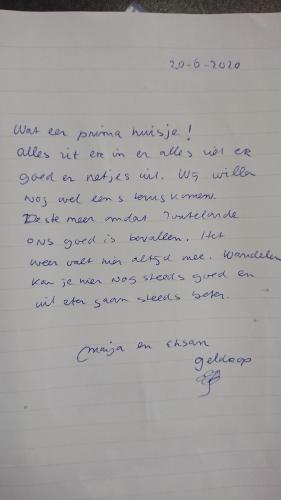 20-6-2020
Wat een prima huisje!
alles zit er in en alles ziet er
goed en netjes uit. Wij willen
nog wel eens terug komen.
Deste meer omdat Zoutelande
ons goed is bevallen. Het
weer valt hier altijd mee. Wandelen
kan je hier nog steeds goed en
uit eten gaan steeds beter.
Marja en Ehsan